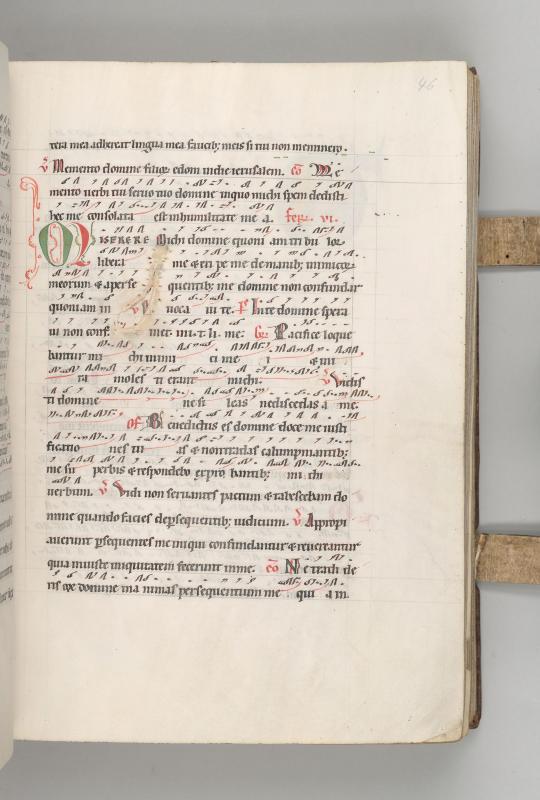 46
tera mea adhereat lingua mea faucib; meis si tui non meminero.
v Memento domine filiorum edom in die ierusalem. co Me
mento verbi tui seruo tuo domine in quo michi spem dedisti
hec me consolata est in humilitate mea. fer. vi.
MISERERE Michi domine quoni am tri bu lor
libera me & eri pe me de manib; inimicor
meorum & a perse quentib; me domine non confundar
quoniam in uo caui te. Ps In te domine spera
ui non conf. Gr Pacifice loque
bantur mi chi inimi ci me i & in i
ra moles ti erant michi. v Vidis
ti domine ne si leas ne discedas a me.
of Be nedictus es domine doce me iusti
ficatio nes tu as & non tradas calumpniantib;
me su perbis & respondebo expro bantib; mi chi
uerbum. v Vidi non seruantes pactum & tabescebam do
mine quando facies de persequentib; iudicium. v Appropi
auerunt persequentes me iniqui confundantur & reuereantur
quia iniuste iniquitatem fecerunt in me. co Ne tradi de
ris me domine in a nimas persequentium me qui a in